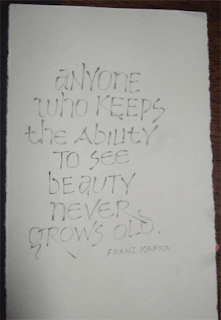 anyone
who keeps
the Ability
TO see
beauty
never
grows old.
FRANZ KAFKA